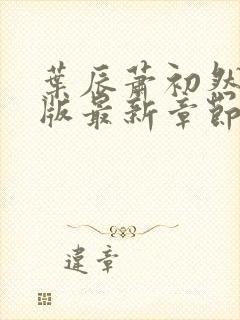 葉辰蕭初然
版最新章節
違章